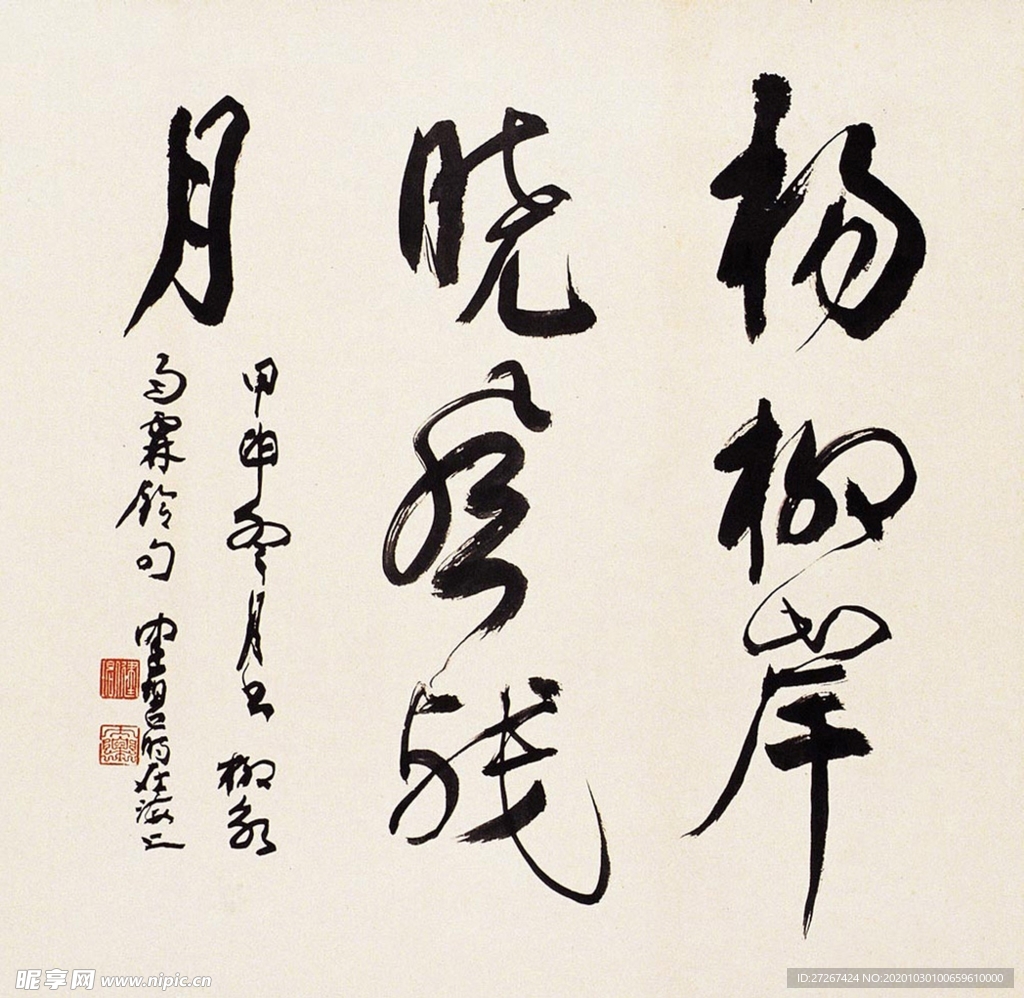 杨柳岸
晓风残
月
甲申冬月书 柳永
雨霖铃句 时在海上
昵享网 www.nipic.cn
ID:27267424 NO:20201030100659610000